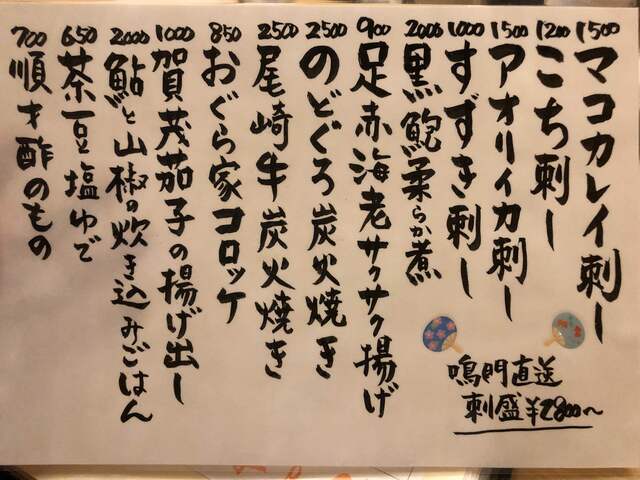 1500 マコカレイ刺し
1200 こち刺し
1500 アオリイカ刺し
1000 すずき刺し
2000 黒鮑柔らか煮
900 足赤海老サクサク揚げ
2500 のどぐろ炭火焼き
2500 尾崎牛炭火焼き
850 おぐら家コロッケ
1000 賀茂茄子の揚げ出し
2000 鮎と山椒の炊き込みごはん
650 茶豆塩ゆで
700 順才酢のもの
鳴門直送
刺盛¥2800〜